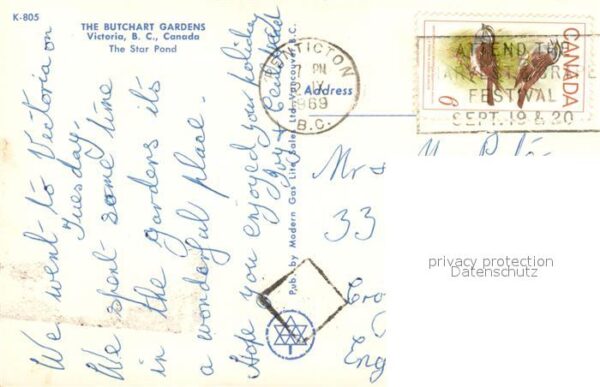 K-805
THE BUTCHART GARDENS
Victoria, B. C., Canada
The Star Pond
We went to Victoria on
Tuesday.
We spent some time
in the Gardens its
a wonderful place.
Hope you enjoyed your holiday
Ivy &
Pub. by Modern Gas Lite Sales Ltd., Vancouver, B.C.
PENTICTON
PM
1969
B.C.
Address
ATTEND THE
HARVEST GRAPE
FESTIVAL
SEPT. 19 & 20
CANADA
6
Mrs
33
Cro
Eng
privacy protection
Datenschutz